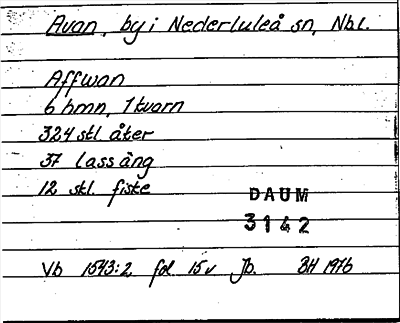 Avan, by i Nederluleå sn, Nbl.
Affwan
6 hmn, 1 kvarn
324 stl åker
37 lass äng
12 skl. fiske
DAUM
3142
Vb 1543:2 fol. 15v Jb. BH 1976